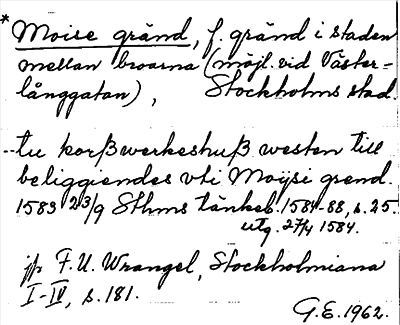 * Moise gränd, f. gränd i staden
mellan broarna (möjl. vid Väster-
långgatan), Stockholms stad.
..tu korßwerkeshuß westen till
beliggiendes vti Moÿsi grend.
1583 23/9 Sthms tänkeb. 1584-88, s. 25.
utg. 27/4 1584.
jfr F. U. Wrangel, Stockholmiana
I-IV, s. 181.
G.E. 1962.